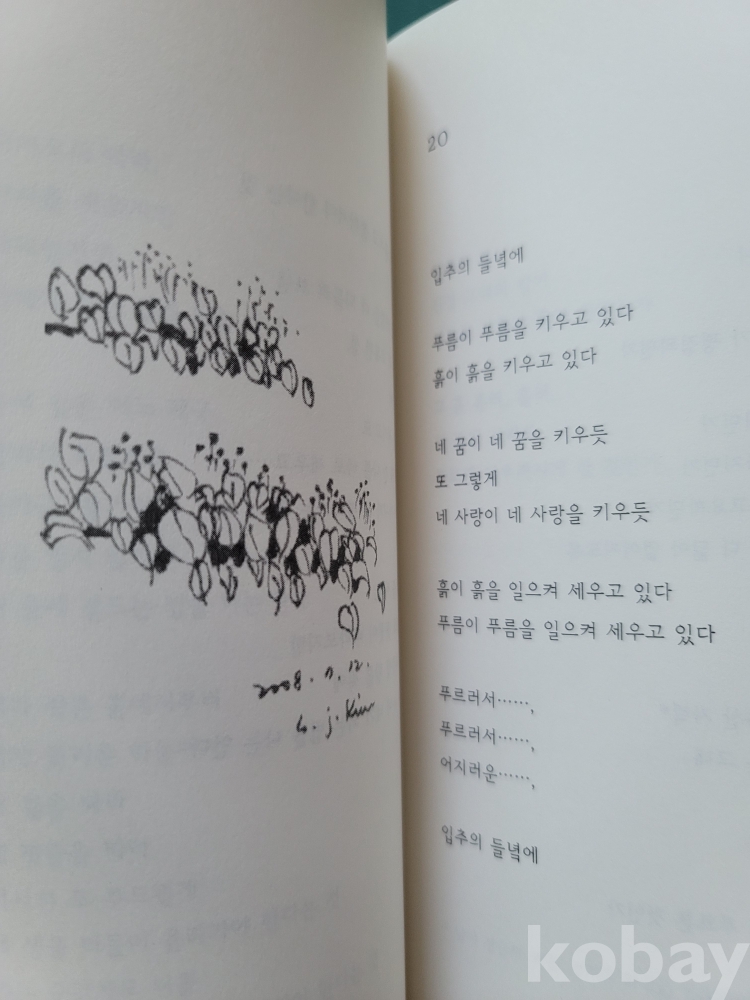 2008. 7. 12.
S. J. Kim
20
입추의 들녘에
푸름이 푸름을 키우고 있다
흙이 흙을 키우고 있다
네 꿈이 네 꿈을 키우듯
또 그렇게
네 사랑이 네 사랑을 키우듯
흙이 흙을 일으켜 세우고 있다
푸름이 푸름을 일으켜 세우고 있다
푸르러서……,
푸르러서……,
어지러운……,
입추의 들녘에
kobay